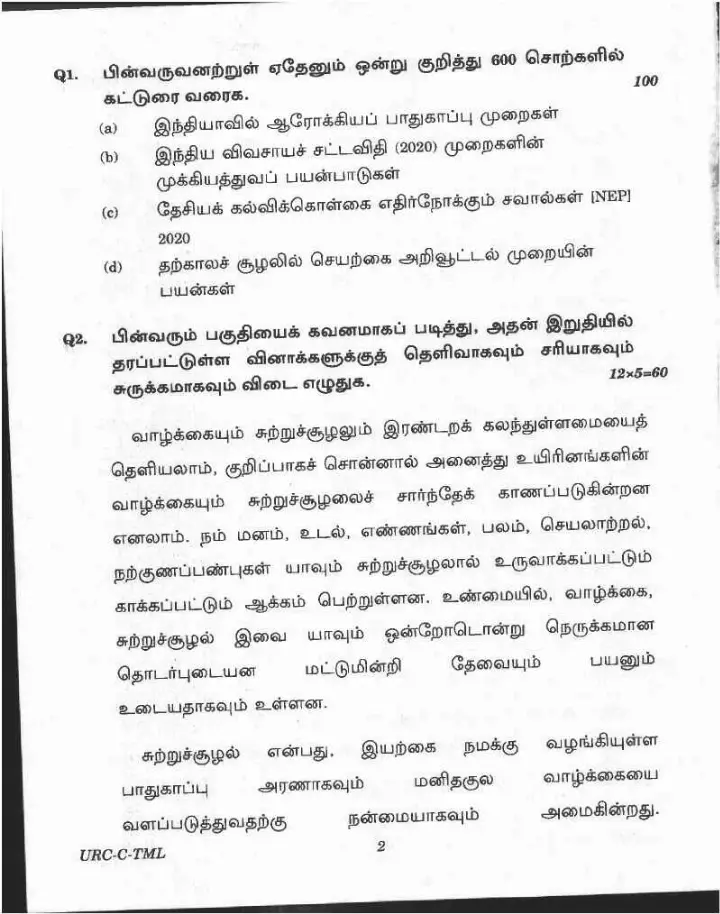 Q1. பின்வருவனற்றுள் ஏதேனும் ஒன்று குறித்து 600 சொற்களில்
கட்டுரை வரைக. 100
(a) இந்தியாவில் ஆரோக்கியப் பாதுகாப்பு முறைகள்
(b) இந்திய விவசாயச் சட்டவிதி (2020) முறைகளின்
முக்கியத்துவப் பயன்பாடுகள்
(c) தேசியக் கல்விக்கொள்கை எதிர்நோக்கும் சவால்கள் [NEP]
2020
(d) தற்காலச் சூழலில் செயற்கை அறிவூட்டல் முறையின்
பயன்கள்
Q2. பின்வரும் பகுதியைக் கவனமாகப் படித்து, அதன் இறுதியில்
தரப்பட்டுள்ள வினாக்களுக்குத் தெளிவாகவும் சரியாகவும்
சுருக்கமாகவும் விடை எழுதுக. 12×5=60
வாழ்க்கையும் சுற்றுச்சூழலும் இரண்டறக் கலந்துள்ளமையைத்
தெளியலாம், குறிப்பாகச் சொன்னால் அனைத்து உயிரினங்களின்
வாழ்க்கையும் சுற்றுச்சூழலைச் சார்ந்தேக் காணப்படுகின்றன
எனலாம். நம் மனம், உடல், எண்ணங்கள், பலம், செயலாற்றல்,
நற்குணப்பண்புகள் யாவும் சுற்றுச்சூழலால் உருவாக்கப்பட்டும்
காக்கப்பட்டும் ஆக்கம் பெற்றுள்ளன. உண்மையில், வாழ்க்கை,
சுற்றுச்சூழல் இவை யாவும் ஒன்றோடொன்று நெருக்கமான
தொடர்புடையன மட்டுமின்றி தேவையும் பயனும்
உடையதாகவும் உள்ளன.
சுற்றுச்சூழல் என்பது. இயற்கை நமக்கு வழங்கியுள்ள
பாதுகாப்பு அரணாகவும் மனிதகுல வாழ்க்கையை
வளப்படுத்துவதற்கு நன்மையாகவும் அமைகின்றது.
URC-C-TML 2